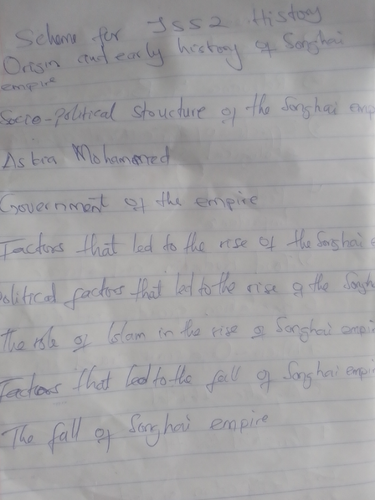 Scheme for JSS2 History
Origin and early history of Songhai
empire
Socio-political structure of the Songhai emp
Askia Mohammed
Government of the empire
Factors that led to the rise of the Songhai e
Political factors that led to the rise of the Songh
The role of Islam in the rise of Songhai empi
Factors that led to the fall of Songhai empi
The fall of Songhai empire